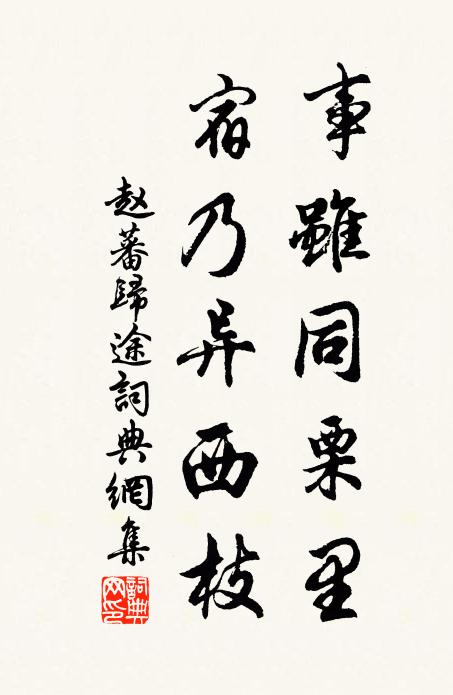 事雖同栗里
宿乃异西枝
赵蕃歸途詞典網集
詞典网印